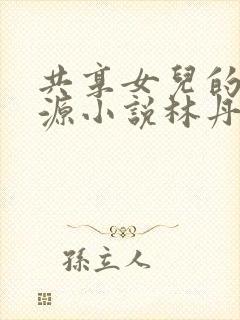 共享女兒的
源小說林丹
孫立人